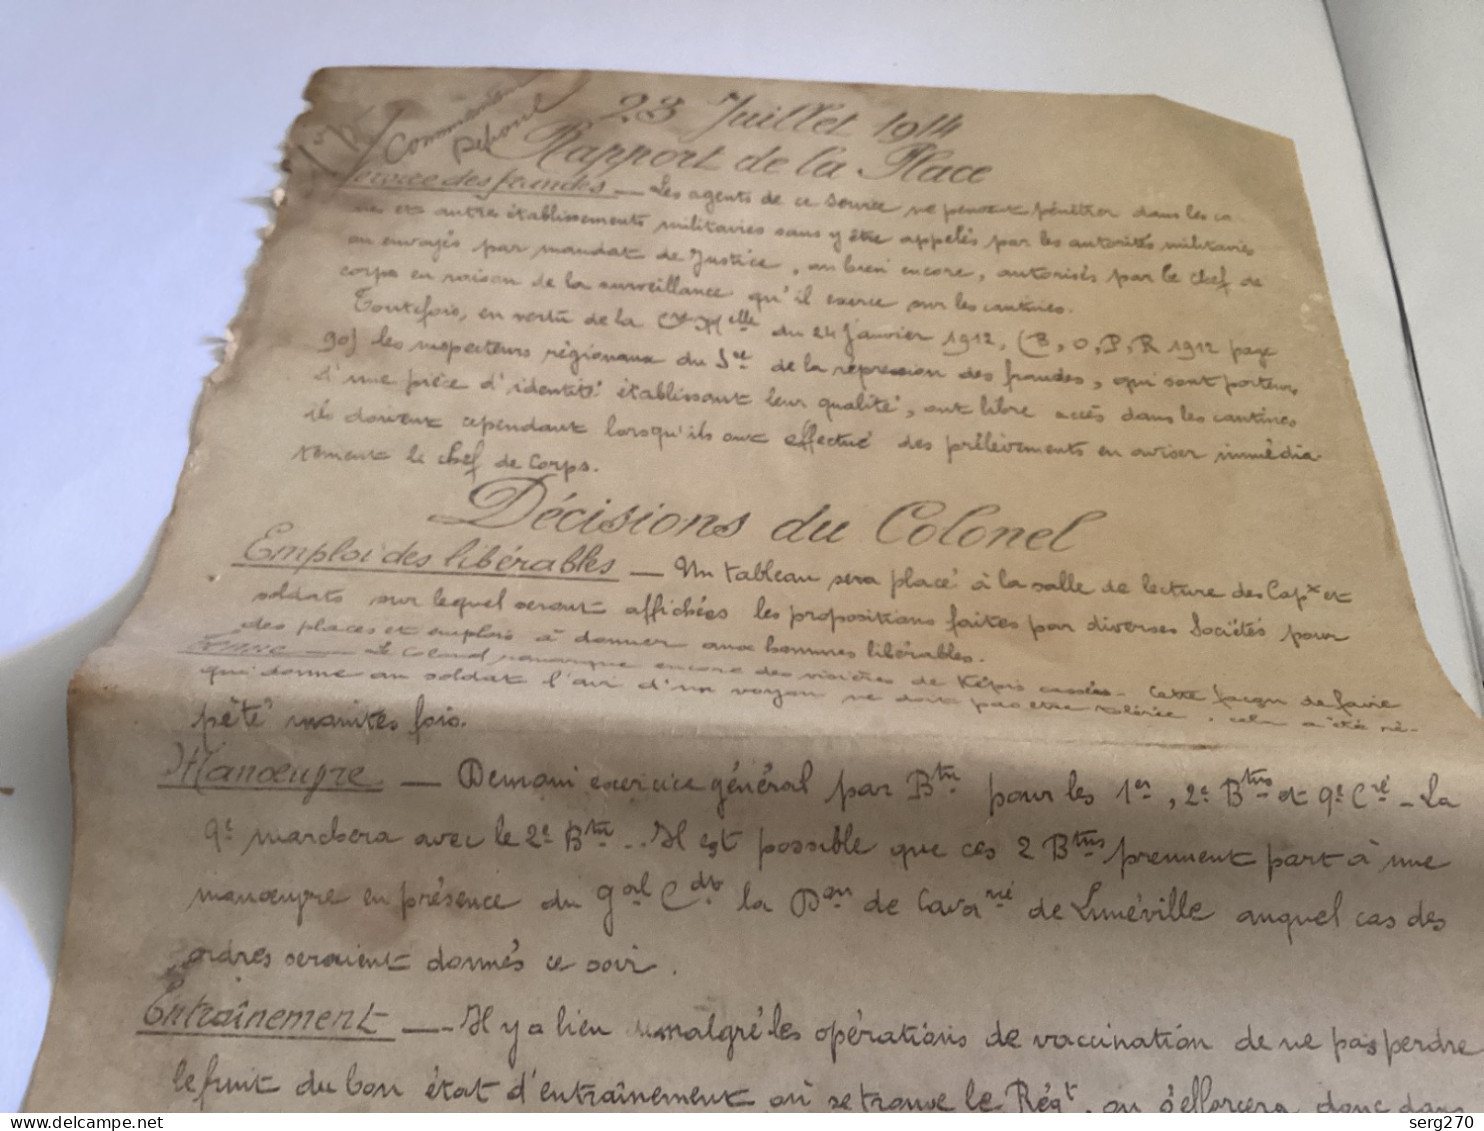 Commandant
23 Juillet 1914
Rapport de la Place
Service des fraudes — Les agents de ce service ne peuvent pénétrer dans les ca
nes et autres établissements militaires sans y être appelés par les autorités militaires
ou envoyés par mandat de Justice, ou bien encore, autorisés par le chef de
corps en raison de la surveillance qu'il exerce sur les cantines.
Toutefois, en vertu de la Con Melle du 24 janvier 1912, (B, O, P, R 1912 page
90) les inspecteurs régionaux du Sce de la répression des fraudes, qui sont porteurs
d'une pièce d'identité établissant leur qualité, ont libre accès dans les cantines
ils doivent cependant lorsqu'ils ont effectué des prélèvements en aviser immédia-
tement le chef de Corps.
Décisions du Colonel
Emploi des libérables — Un tableau sera placé à la salle de lecture des Capx et
soldats sur lequel seront affichées les propositions faites par diverses Sociétés pour
des places et emplois à donner aux hommes libérables.
Tenue — Le Colonel remarque encore des visières de Képis cassées. Cette façon de faire
qui donne au soldat l'air d'un voyou ne doit pas être tolérée. cela a été ré-
pété maintes fois.
Manœuvre — Demain exercice général par Bton pour les 1er, 2e Btons et 9e Cie - La
9e marchera avec le 2e Bton. - Il est possible que ces 2 Btons prennent part à une
manœuvre en présence du Gal Cdt la Don de Cavarie de Lunéville auquel cas des
ordres seraient donnés ce soir.
Entraînement — Il y a lieu malgré les opérations de vaccination de ne pas perdre
le fruit du bon état d'entraînement où se trouve le Régt. on s'efforcera donc dans
serg270